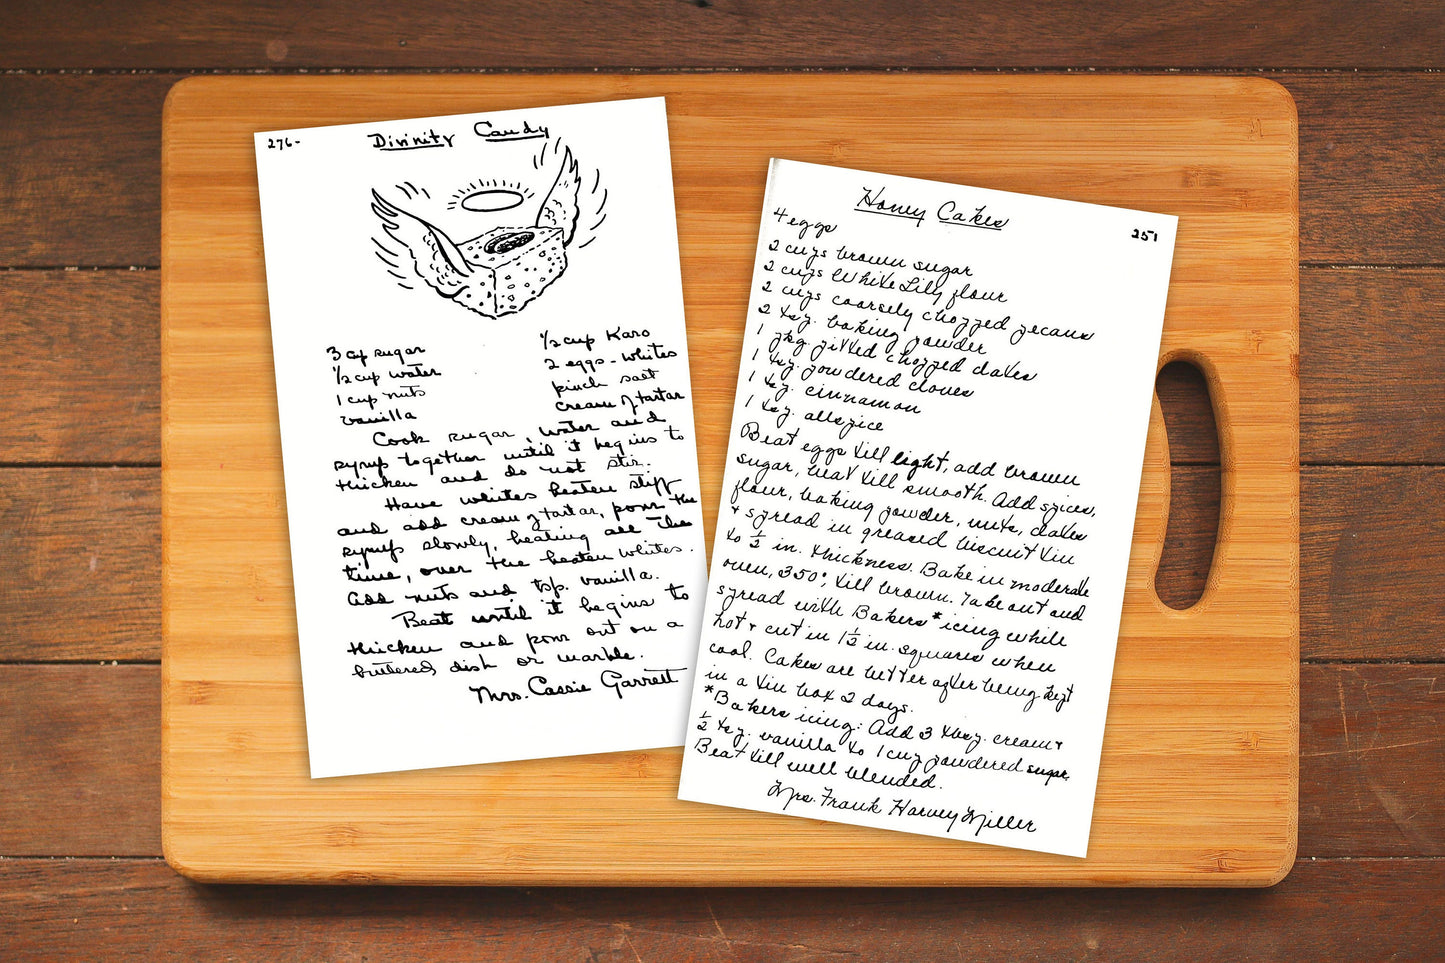 276-
Divinity Candy
3 cup sugar
1/2 cup water
1 cup nuts
vanilla
1/2 cup Karo
2 eggs - whites
pinch salt
cream of tartar
Cook sugar, water and
syrup together until it begins to
thicken and do not stir.
Have whites beaten stiff
and add cream of tartar, pour the
syrup slowly, beating all the
time, over the beaten whites.
add nuts and tsp. vanilla.
Beat until it begins to
thicken and pour out on a
buttered dish or marble.
Mrs. Cassie Garrett
Honey Cakes
251
4 eggs
2 cups brown sugar
2 cups White Lily flour
2 cups coarsely chopped pecans
2 tsp. baking powder
1 pkg. pitted chopped dates
1 tsp. powdered cloves
1 tsp. cinnamon
1 tsp. allspice
Beat eggs till light, add brown
sugar, beat till smooth. Add spices,
flour, baking powder, nuts, dates
+ spread in greased biscuit tin
to 1/2 in. thickness. Bake in moderate
oven, 350°, till brown. Take out and
spread with Bakers *icing while
hot + cut in 1 1/2 in. squares when
cool. Cakes are better after being kept
in a tin box 2 days.
*Bakers icing: Add 3 tbsp. cream +
1/2 tsp. vanilla to 1 cup powdered sugar.
Beat till well blended.
Mrs. Frank Harvey Miller